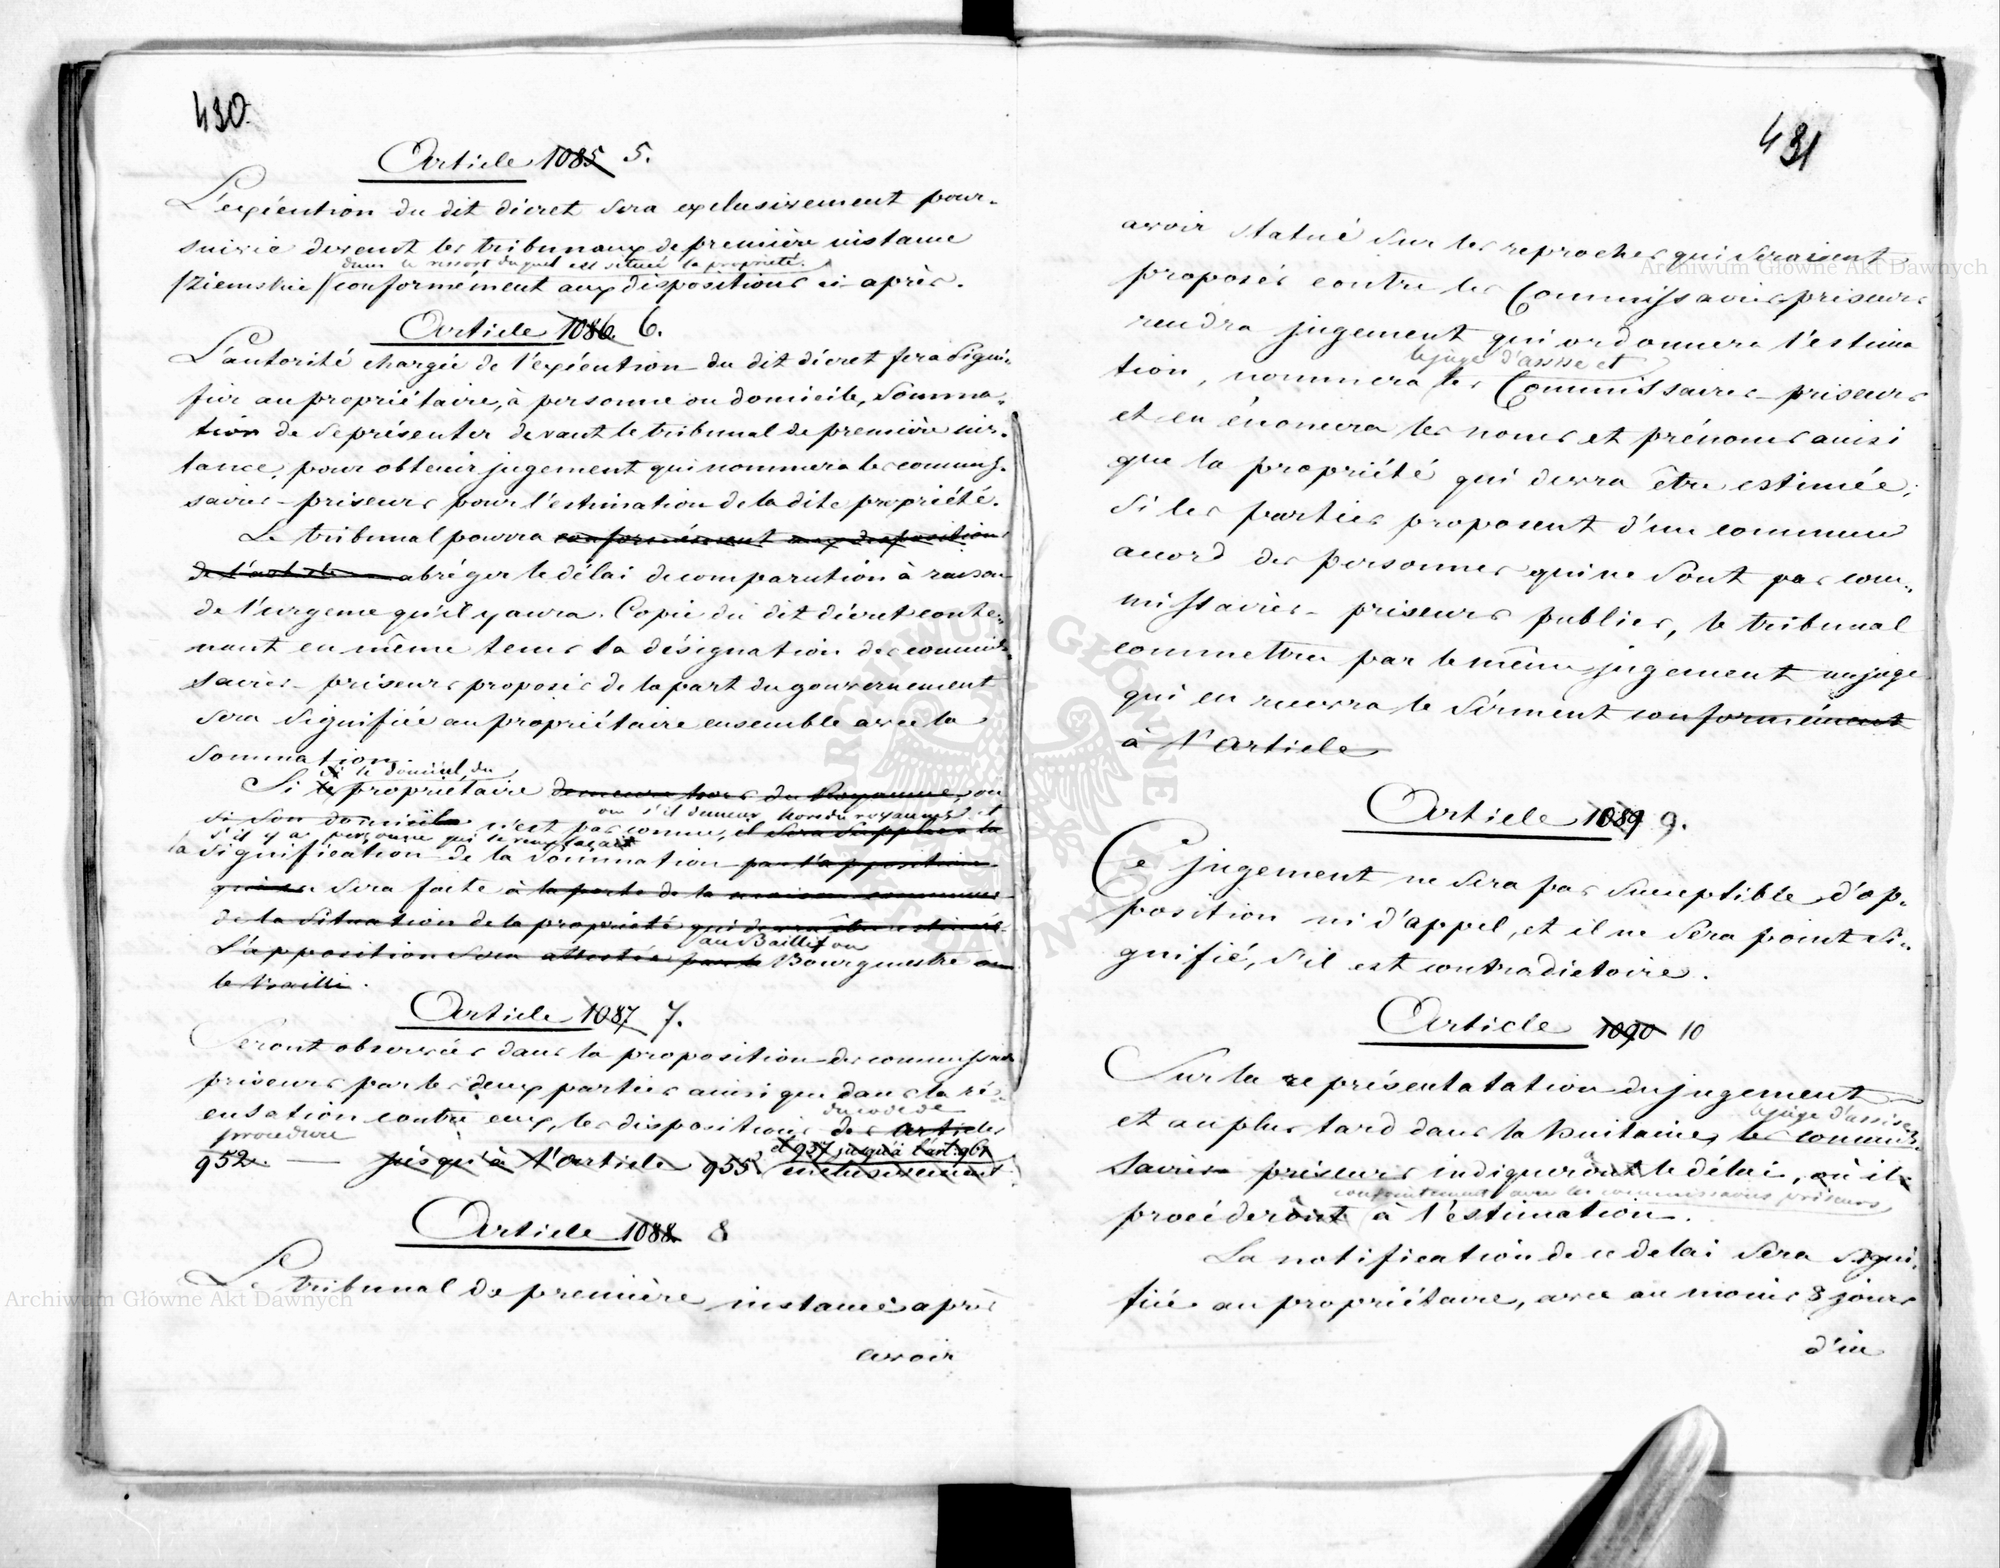 430
Article 1085 5.
L'exécution du dit décret sera exclusivement pour-
suivie devant les tribunaux de première instance
dans le ressort duquel est située la propriété.
(Ziemskie) conformément aux dispositions ci-après.
Article 1086. 6.
L'autorité chargée de l'exécution du dit décret fera signi-
fier au propriétaire, à personne ou domicile, somma-
tion de se présenter devant le tribunal de première ins-
tance, pour obtenir jugement qui nommera les commis-
saires-priseurs pour l'estimation de la dite propriété.
Le tribunal pourra conformément aux dispositions
de l'article abréger le délai de comparution à raison
de l'urgence qu'il y aura. Copie du dit décret conte-
nant en même tems la désignation des commis-
saires-priseurs proposés de la part du gouvernement
sera signifiée au propriétaire ensemble avec la
sommation.
si le domicil, du
Si le propriétaire demeure hors du Royaume, ou
ou s'il demeure hors du royaume et
si son domicile n'est pas connu, il sera suppléé à la
s'il y a personne qui le remplaçait
la signification de la sommation par l'apposition
qui en sera faite à la porte de la maison commune
de la situation de la propriété qui devra être estimée.
au Baillif ou
L'apposition sera attestée par le Bourgmestre ou
le Bailli.
Article 1087. 7.
Seront observées dans la proposition des commissaires
priseurs par les deux parties ainsi que dans la ré-
cusation contre eux, les dispositions des articles
du code de
procédure
et 957 jusqu'à l'art: 961
952. — jusqu'à l'Article 955, inclusivement.
Article 1088. 8
Le tribunal de première instance après
avoir
431
avoir statué sur les reproches qui seraient
proposés contre les Commissaires-priseurs
rendra jugement qui ordonnera l'estima
le juge d'assise et
tion, nommera les Commissaires-priseurs
et en énoncera les noms et prénoms ainsi
que la propriété qui devra être estimée;
Si les parties proposent d'un commun
accord des personnes qui ne sont pas com-
missaires-priseurs publics, le tribunal
commettra par le même jugement un juge
qui en recevra le serment conformément
à l'Article
Article 1089 9.
Ce jugement ne sera pas susceptible d'op-
position ni d'appel, et il ne sera point si-
gnifié, s'il est contradictoire.
Article 1090 10
Sur la représentatation du jugement
le juge d'assise
et au plus tard dans la huitaine, les commis-
saires priseurs indiqueront le délai, où il
conjointement avec les commissaires priseurs
procéderont à l'estimation.
La notification de ce delai sera signi-
fiée au propriétaire, avec au moins 8 jours
d'in
Archiwum Główne Akt Dawnych
Archiwum Główne Akt Dawnych
ARCHIWUM GŁÓWNE AKT DAWNYCH